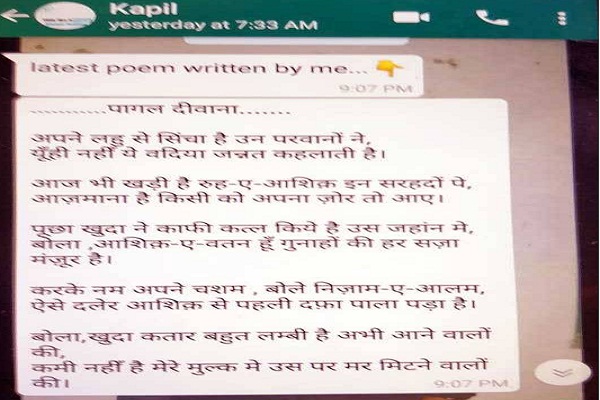 Kapil
yesterday at 7:33 AM
latest poem written by me... 👇
9:07 PM
............पागल दीवाना.......
अपने लहु से सिंचा है उन परवानों ने,
यूँही नहीं ये वदिया जन्नत कहलाती है।
आज भी खड़ी है रुह-ए-आशिक़ इन सरहदों पे,
आज़माना है किसी को अपना ज़ोर तो आए।
पूछा खुदा ने काफी कत्ल किये है उस जहांन मे,
बोला ,आशिक़-ए-वतन हूँ गुनाहों की हर सज़ा
मंज़ूर है।
करके नम अपने चशम , बोले निज़ाम-ए-आलम,
ऐसे दलेर आशिक़ से पहली दफ़ा पाला पड़ा है।
बोला,खुदा कतार बहुत लम्बी है अभी आने वालों
की,
कमी नहीं है मेरे मुल्क मे उस पर मर मिटने वालों
की।
9:07 PM